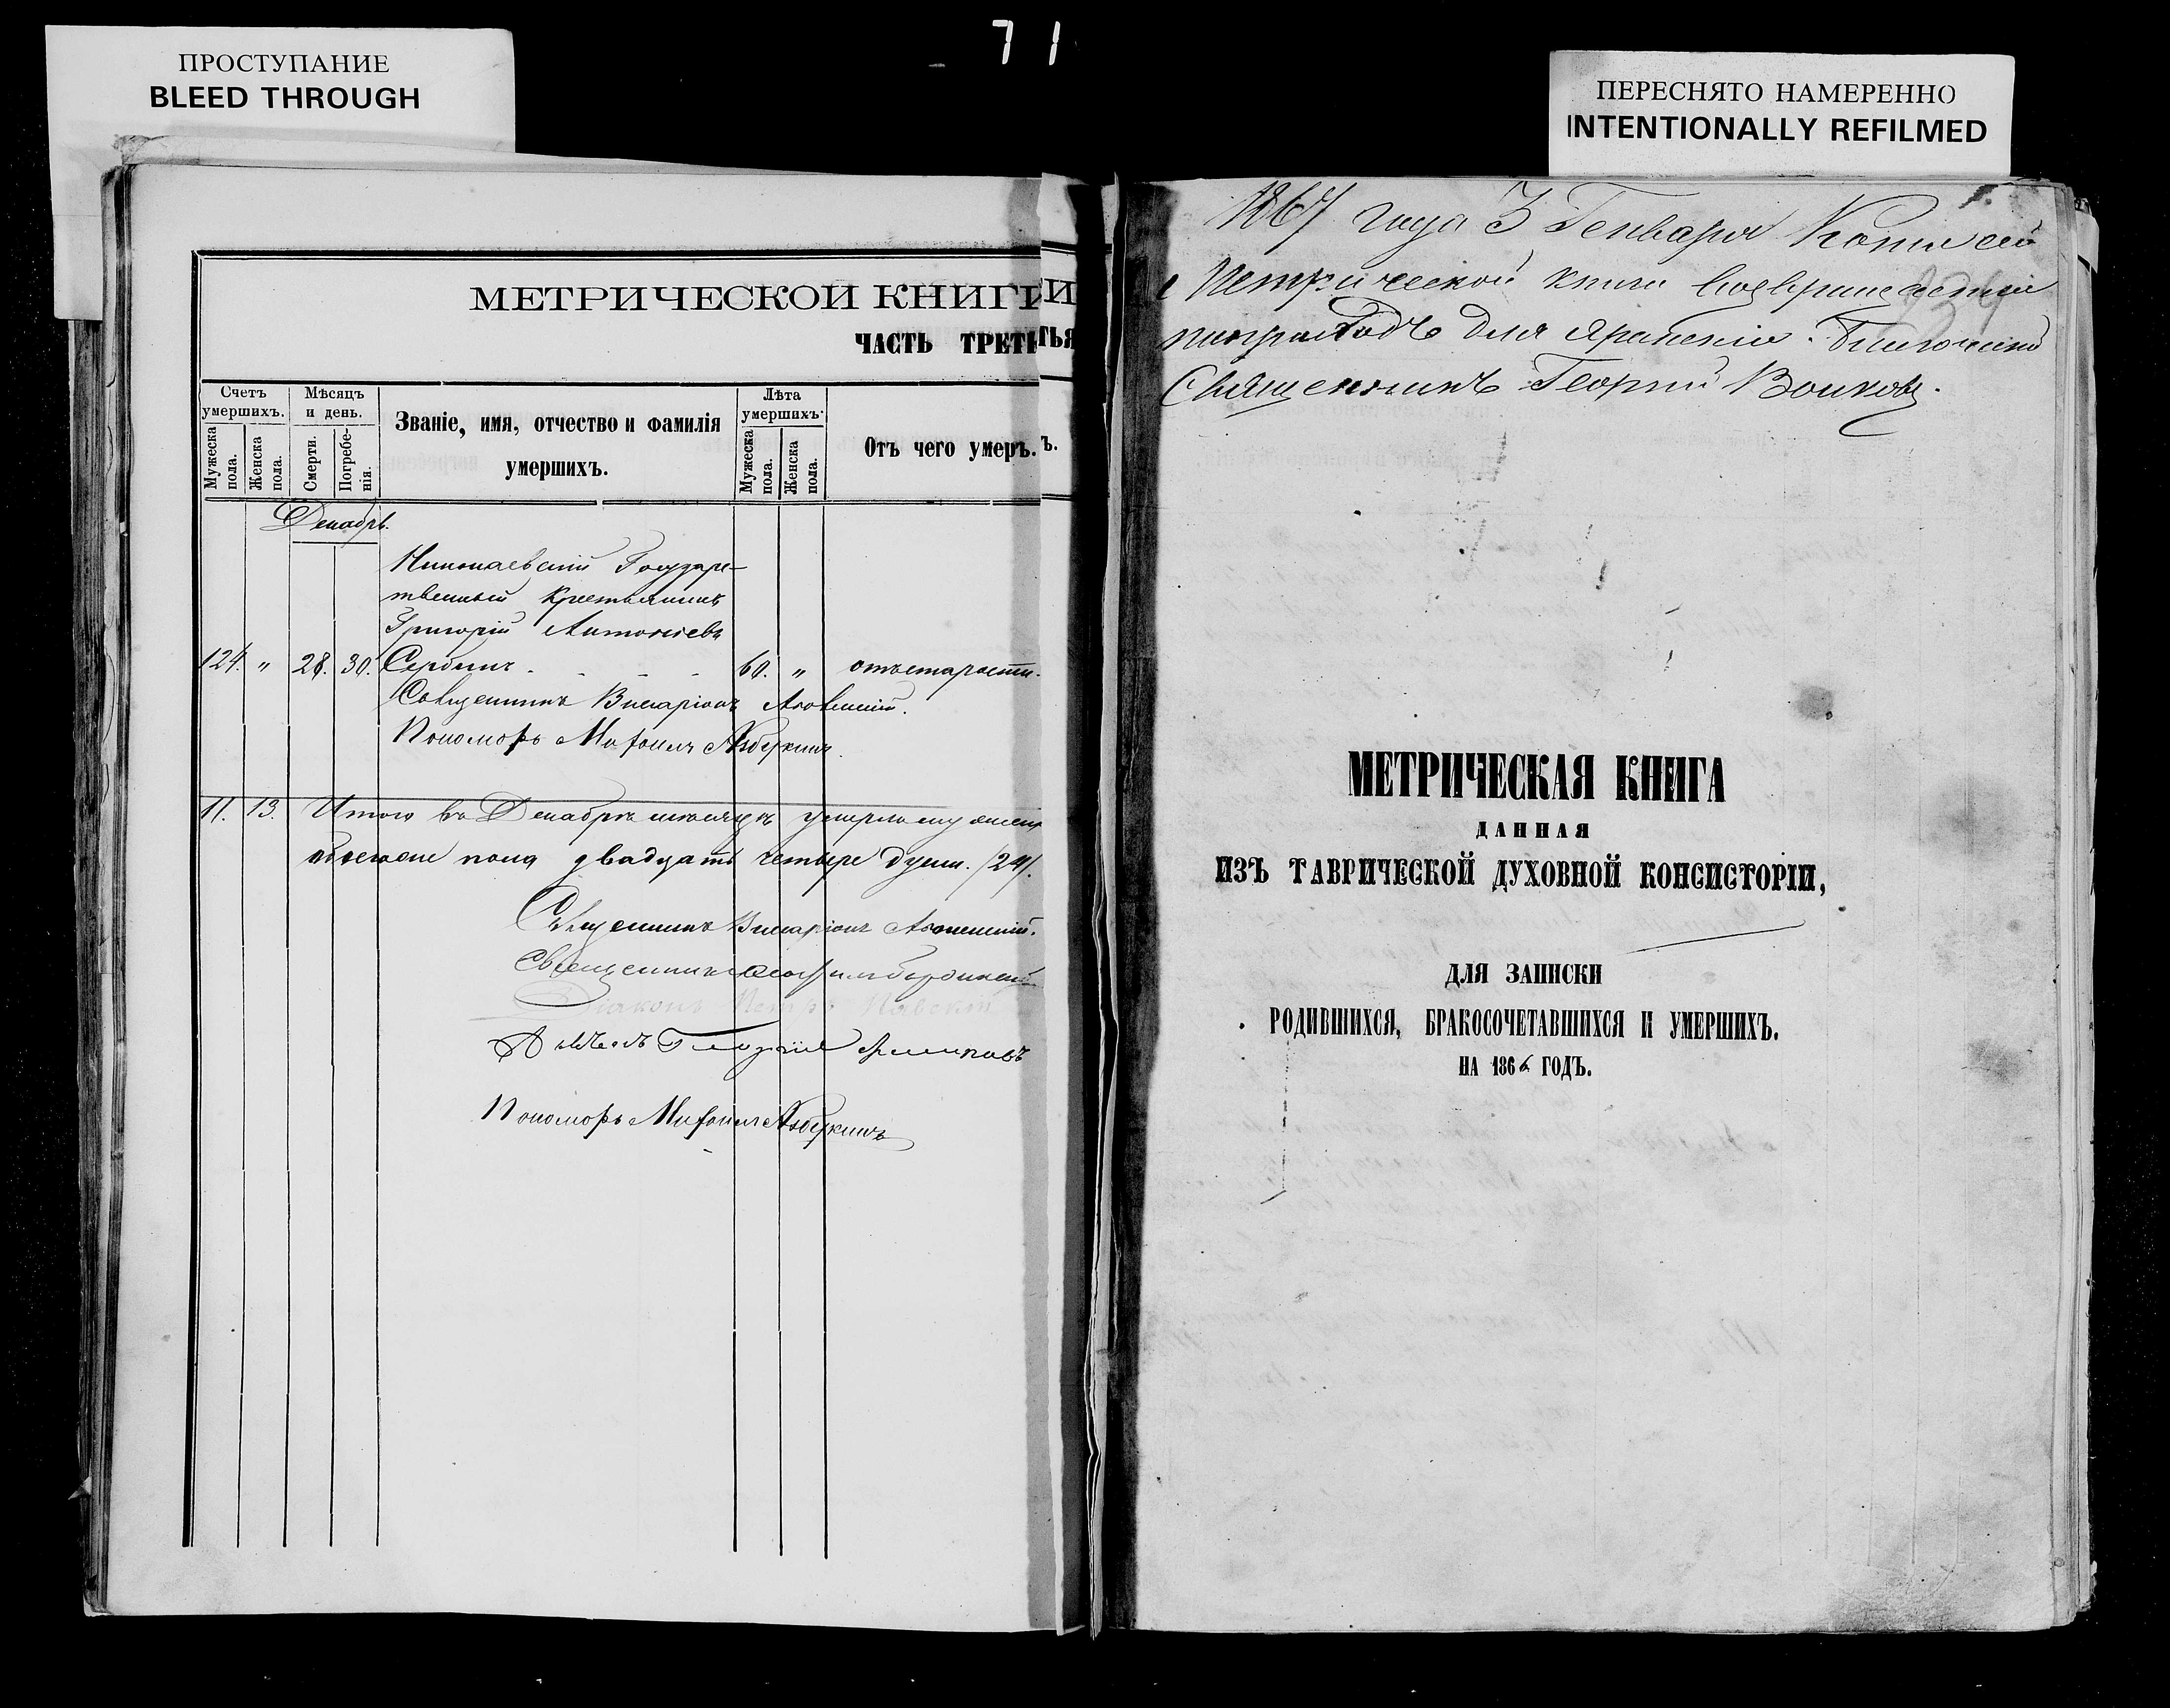 71
ПРОСТУПАНИЕ
BLEED THROUGH
ПЕРЕСНЯТО НАМЕРЕННО
INTENTIONALLY REFILMED
МЕТРИЧЕСКОЙ КНИГИ
ЧАСТЬ ТРЕТЬЯ
Счетъ умершихъ.
Мужеска пола.
Женска пола.
Мѣсяцъ и день.
Смерти.
Погребенія.
Званіе, имя, отчество и фамилія
умершихъ.
Лѣта умершихъ.
Мужеска пола.
Женска пола.
Отъ чего умеръ.
Декабрь.
Николаевскій Государс-
твенный крестьянинъ
Григорій Антоніевъ
124. " 28. 30. 60. " отъ старости.
Священникъ Виссаріонъ
Пономарь Михаилъ Азбукинъ.
11. 13. Итого въ Декабрѣ мѣсяцѣ умерло
пола двадцать четыре души. (24).
Священникъ Виссаріонъ
Священникъ
Діаконъ Петръ
Пономарь Михаилъ Азбукинъ
1867 года 3 Генваря Копія сей
Метрической книги
для храненія. Благочинный
Священникъ Георгій Волковъ.
МЕТРИЧЕСКАЯ КНИГА
ДАННАЯ
ИЗЪ ТАВРИЧЕСКОЙ ДУХОВНОЙ КОНСИСТОРІИ,
ДЛЯ ЗАПИСКИ
РОДИВШИХСЯ, БРАКОСОЧЕТАВШИХСЯ И УМЕРШИХЪ.
НА 1866 ГОДЪ.